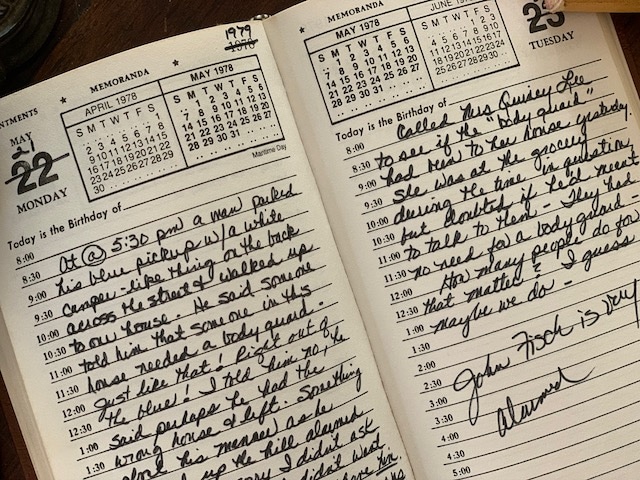 NTMENTS
★ MEMORANDA ★
1979
1978
MAY
21
22
MONDAY
APRIL 1978
S M T W T F S
1
2 3 4 5 6 7 8
9 10 11 12 13 14 15
16 17 18 19 20 21 22
23 24 25 26 27 28 29
30
MAY 1978
S M T W T F S
1 2 3 4 5 6
7 8 9 10 11 12 13
14 15 16 17 18 19 20
21 22 23 24 25 26 27
28 29 30 31
Maritime Day
Today is the Birthday of
8:00 At @ 5:30 pm a man parked
8:30 his blue pickup w/a white
9:00 camper-like thing on the back
9:30 across the street & walked up
10:00 to our house - He said someone
10:30 told him that someone in this
11:00 house needed a body guard -
11:30 Just like that! Right out of
12:00 the blue! I told him no, he
12:30 said perhaps he had the
1:00 wrong house & left. Something
1:30 about his manner as he
up the hill alarmed
I didn't ask
didn't want
★ MEMORANDA
MAY 1978
S M T W T F S
1 2 3 4 5 6
7 8 9 10 11 12 13
14 15 16 17 18 19 20
21 22 23 24 25 26 27
28 29 30 31
JUNE 197
S M T W T F S
1 2 3
4 5 6 7 8 9 10
11 12 13 14 15 16 17
18 19 20 21 22 23 24
25 26 27 28 29 30
23
TUESDAY
Today is the Birthday of
8:00 Called Mrs Quincy Lee
8:30 to see if the "body guard"
9:00 had been to her house yesterday.
9:30 She was at the grocery
10:00 during the time in question
10:30 but doubted if he'd meant
11:00 to talk to them - They had
11:30 no need for a body guard -
12:00 How many people do for
12:30 that matter? I guess
1:00 maybe we do -
1:30
2:00
2:30 John Fisch is very
3:00
3:30 alarmed
4:00
4:30
5:00